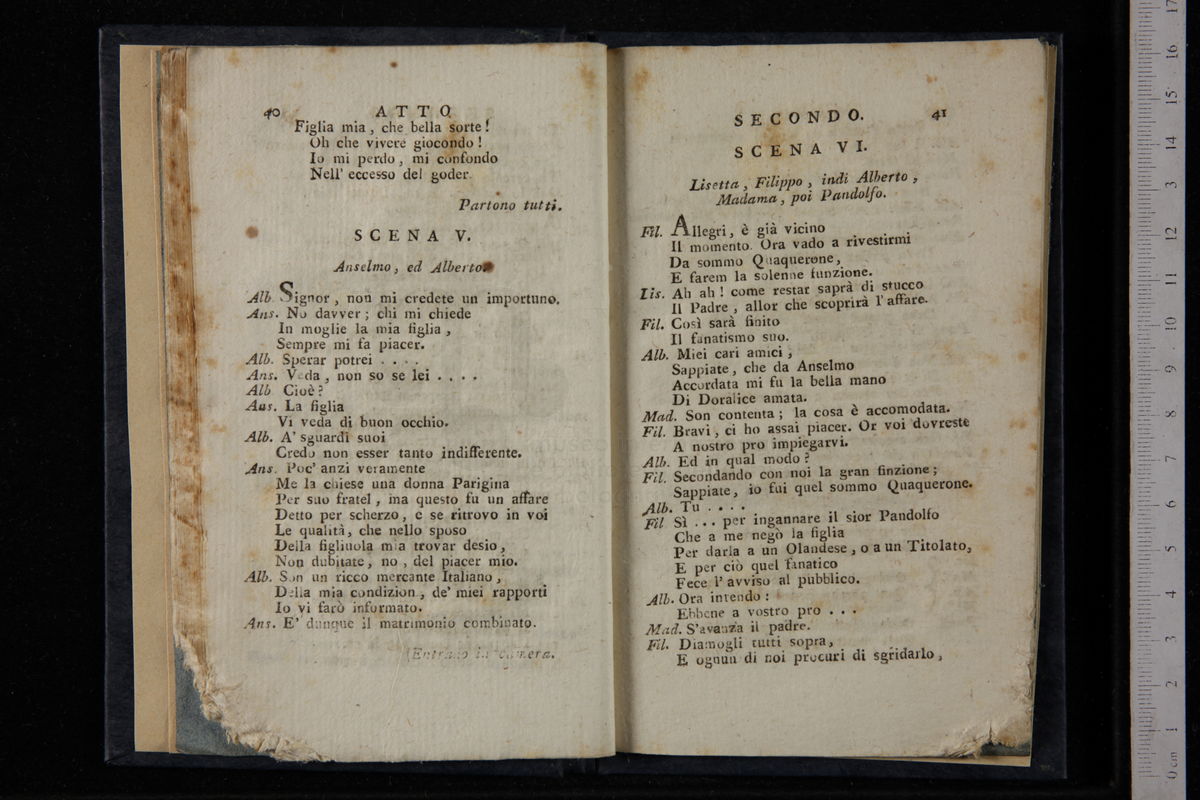 40 ATTO
Figlia mia, che bella sorte!
Oh che vivere giocondo!
Io mi perdo, mi confondo
Nell' eccesso del goder.
Partono tutti.
SCENA V.
Anselmo, ed Alberto.
Alb. Signor, non mi credete un importuno.
Ans. No davver; chi mi chiede
In moglie la mia figlia,
Sempre mi fa piacer.
Alb. Sperar potrei . . . .
Ans. Veda, non so se lei . . . .
Alb. Cioè?
Ans. La figlia
Vi veda di buon occhio.
Alb. A' sguardi suoi
Credo non esser tanto indifferente.
Ans. Poc' anzi veramente
Me la chiese una donna Parigina
Per suo fratel, ma questo fu un affare
Detto per scherzo, e se ritrovo in voi
Le qualità, che nello sposo
Della figliuola mia trovar desio,
Non dubitate, no, del piacer mio.
Alb. Son un ricco mercante Italiano,
Della mia condizion, de' miei rapporti
Io vi farò informato.
Ans. E' dunque il matrimonio combinato.
(Entrano in camera.
SECONDO. 41
SCENA VI.
Lisetta, Filippo, indi Alberto,
Madama, poi Pandolfo.
Fil. Allegri, è già vicino
Il momento. Ora vado a rivestirmi
Da sommo Quaquerone,
E farem la solenne funzione.
Lis. Ah ah! come restar saprà di stucco
Il Padre, allor che scoprirà l'affare.
Fil. Così sarà finito
Il fanatismo suo.
Alb. Miei cari amici,
Sappiate, che da Anselmo
Accordata mi fu la bella mano
Di Doralice amata.
Mad. Son contenta; la cosa è accomodata.
Fil. Bravi, ci ho assai piacer. Or voi dovreste
A nostro pro impiegarvi.
Alb. Ed in qual modo?
Fil. Secondando con noi la gran finzione;
Sappiate, io fui quel sommo Quaquerone.
Alb. Tu . . . .
Fil Sì ... per ingannare il sior Pandolfo
Che a me negò la figlia
Per darla a un Olandese, o a un Titolato,
E per ciò quel fanatico
Fece l'avviso al pubblico.
Alb. Ora intendo:
Ebbene a vostro pro . . .
Mad. S'avanza il padre.
Fil. Diamogli tutti sopra,
E ognun di noi procuri di sgridarlo,
0 cm 1 2 3 4 5 6 7 8 9 10 11 12 13 14 15 16 17